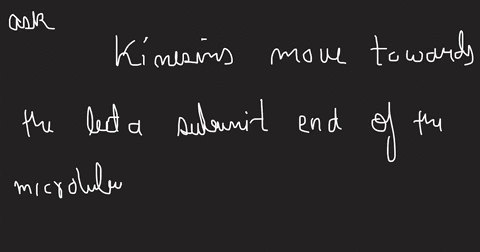 ask
Kinesins move towards
the beta subunit end of the